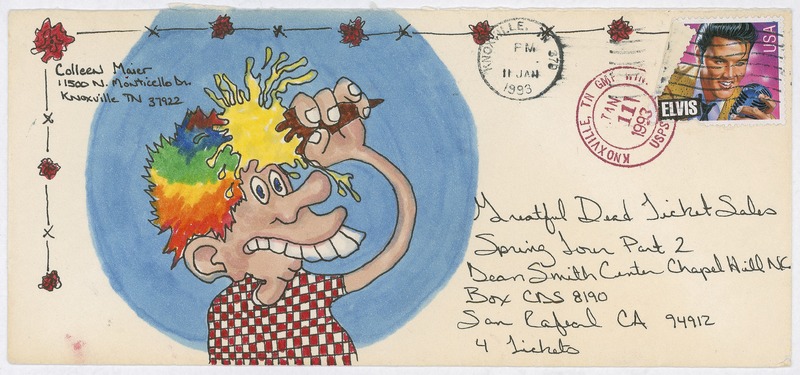 Colleen Maier
11500 N. Monticello Dr.
Knoxville TN 37922
KNOXVILLE, TN 379
PM
11 JAN
1993
KNOXVILLE, TN GMF WIN.
7 AM
11
1993
USPS
USA
ELVIS
Greatful Dead Ticket Sales
Spring Tour Part 2
Dean Smith Center Chapel Hill NC
Box CDS 8190
San Rafeal CA 94912
4 Tickets